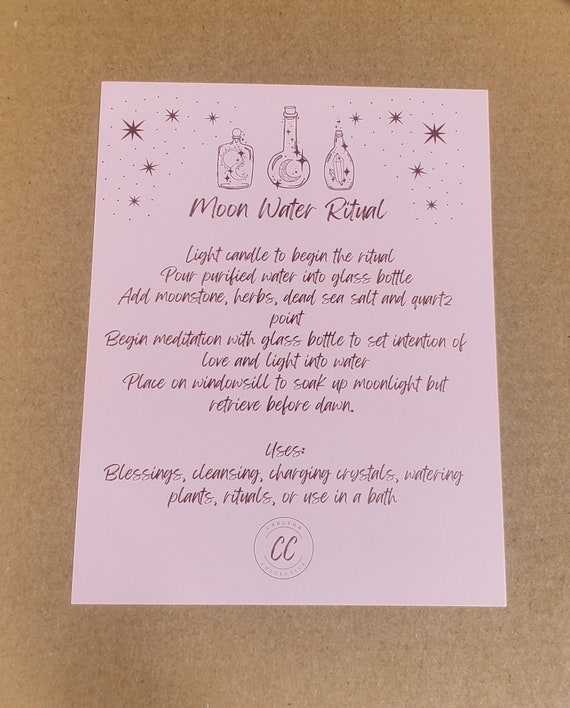 Moon Water Ritual
Light candle to begin the ritual
Pour purified water into glass bottle
Add moonstone, herbs, dead sea salt and quartz
point
Begin meditation with glass bottle to set intention of
love and light into water
Place on windowsill to soak up moonlight but
retrieve before dawn.
Uses:
Blessings, cleansing, charging crystals, watering
plants, rituals, or use in a bath
CC